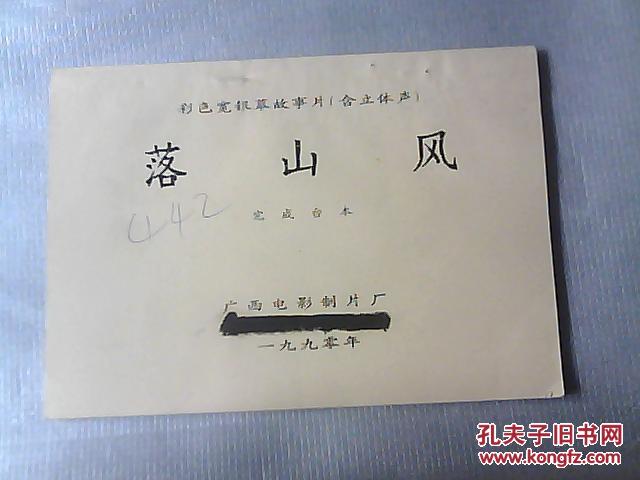 彩色宽银幕故事片(含立体声)
落山风
442
完成台本
广西电影制片厂
一九九零年
孔夫子旧书网
www.kongfz.com